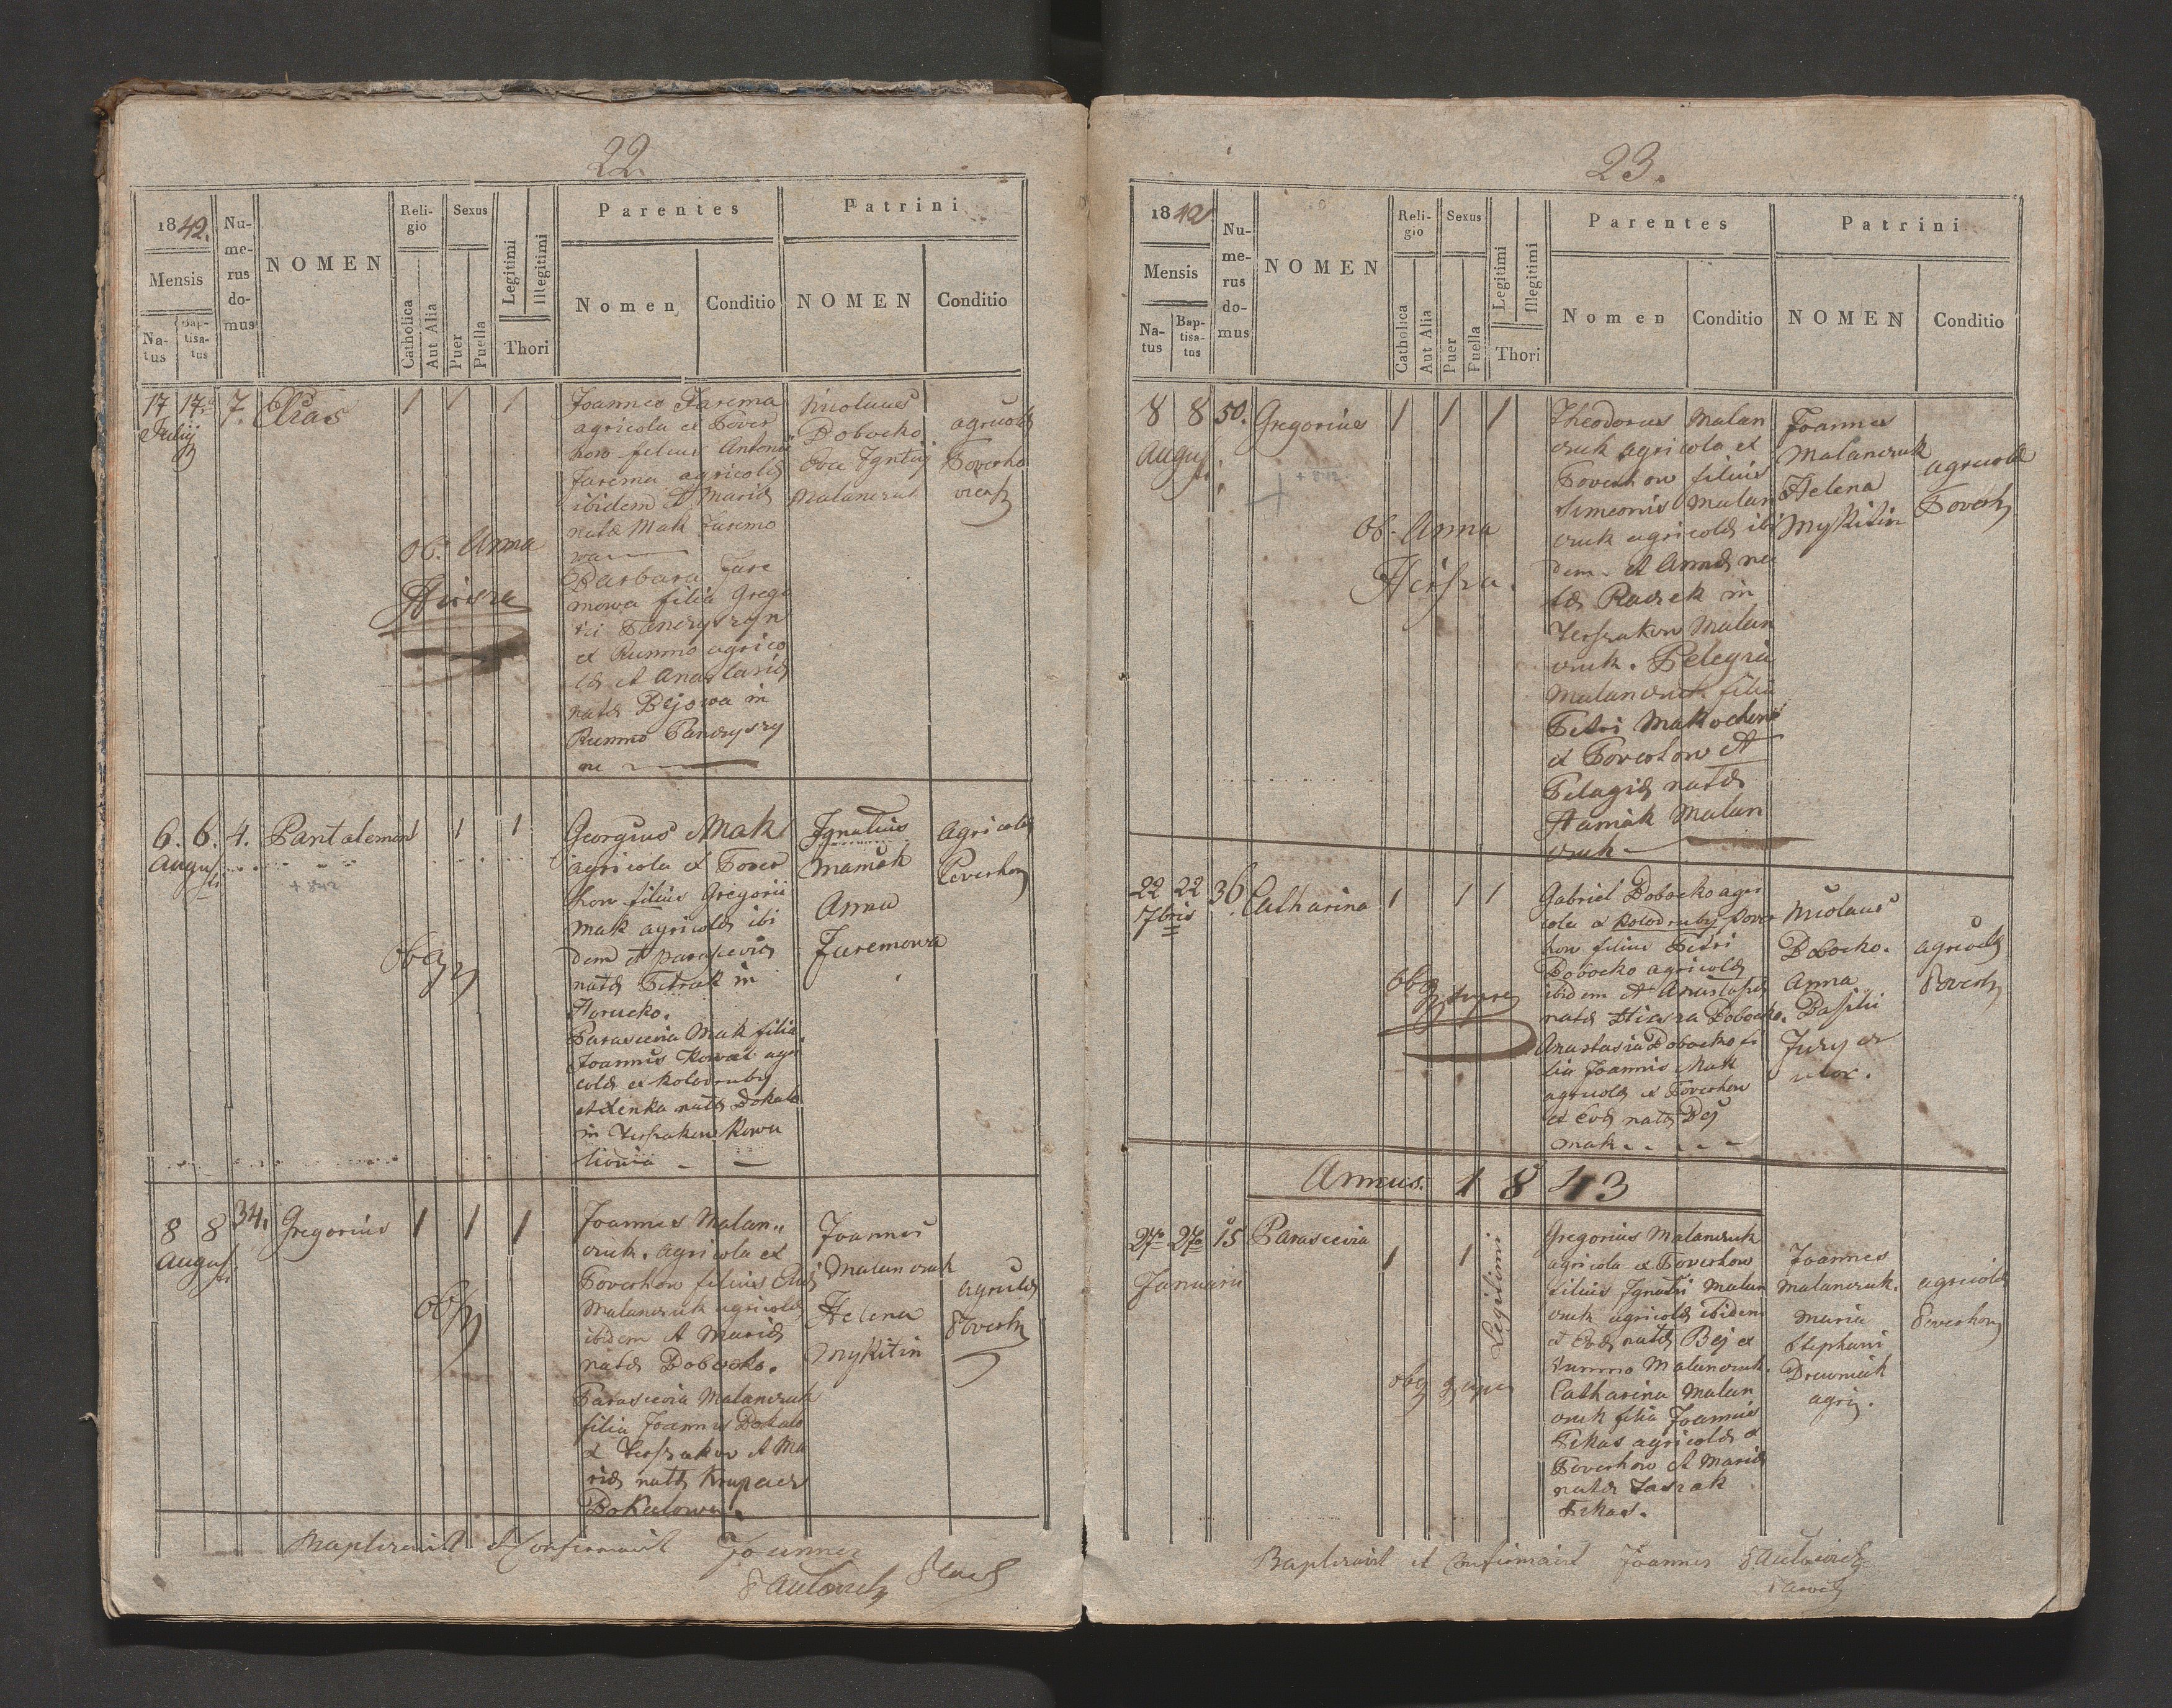 22.
1842.
Mensis
Na-
tus
Bap-
tisa-
tus
Nu-
me-
rus
do-
mus
NOMEN
Reli-
gio
Catholica
Aut Alia
Sexus
Puer
Puella
Legitimi
Illegitimi
Thori
Parentes
Nomen
Conditio
Patrini
NOMEN
Conditio
17 17 7. Elias 1 1 1
Julij
Joannes Jarema
agricola ex Pover
how filius Antonii
Jarema agricolæ
ibidem et Mariæ
natæ Mak Jaremo
wa
Barbara Jare
mowa filia Grego
rii
ex Rumno agrico
læ et Anastasiæ
natæ Bejowa in
Rumno
ne
Nicolaus
Dobocko
Eva Ignatij
Malanczuk
agricolæ
Poverho
viens
ob. Anna
Hirsza
6. 6. 4. Pantalemon 1 1 1
Augusti
+ 842
Georgius Mak
agricola ex Pover
how filius Gregorii
Mak agricolæ ibi
dem et Parasceviæ
natæ Petrak in
Horucko.
Parascevia Mak filia
Joannis Kowal agri
colæ ex Kolodruby
et Lenka natæ Dokalo
in Terszakow Kowa
liowia
Ignatius
Mamak
Anna
Jaremowa
agricolæ
Poverhow
8 8 34. Gregorius 1 1 1
Augusti
Joannes Malan
czuk. agricola ex
Poverhow filius Eliæ
Malanczuk agricolæ
ibidem et Mariæ
natæ Dobocko.
Parascevia Malanczuk
filia Joannis Dokalo
ex Terszakow et Ma
riæ natæ Krupacz
Dokalowa.
Joannes
Malanczuk
Helena
Mykitin
agricolæ
Poverh
Baptisavit et Confirmavit Joannes
23.
1842
Mensis
Na-
tus
Bap-
tisa-
tus
Nu-
me-
rus
do-
mus
NOMEN
Reli-
gio
Catholica
Aut Alia
Sexus
Puer
Puella
Legitimi
Illegitimi
Thori
Parentes
Nomen
Conditio
Patrini
NOMEN
Conditio
8 8 50. Gregorius 1 1 1
Augusti
+ 842.
Theodorus Malan
czuk agricola ex
Poverhow filius
Simeonis Malan
czuk agricolæ ibi
dem. et Annæ na
tæ Raczek in
Terszakow Malan
czuk. Pelagia
Malanczuk filia
Petri
ex Poverhow et
Pelagiæ natæ
Hamak Malan
czuk
Joannes
Malanczuk
Helena
Mykitin
agricolæ
Poverh
ob. Anna
Hirsza.
22 22 36. Catharina 1 1 1
7bris
Gabriel Dobocko agri
cola ex Kolodruby Pover
how filius Petri
Dobocko agricolæ
ibidem et Anastasiæ
natæ Hirsza Dobocko.
Anastasia Dobocko fi
lia Joannis Mak
agricolæ ex Poverhow
et Evæ natæ Bej
Mak
Nicolaus
Dobocko.
Anna
Basilii
uxor.
agricolæ
Poverh
Annus. 1843
27 27 15 Parascevia 1 1 Legitimi
Januarii
Gregorius Malanczuk
agricola ex Poverhow
filius Ignatii Malan
czuk agricolæ ibidem
et Evæ natæ Bej ex
Rumno Malanczuk.
Catharina Malan
czuk filia Joannis
Fekas agricolæ ex
Poverhow et Mariæ
natæ Laszak
Fekas.
Joannes
Malanczuk.
Maria
Stephani
Drewniak
agri.
agricolæ
Poverhow
Baptisavit et Confirmavit Joannes